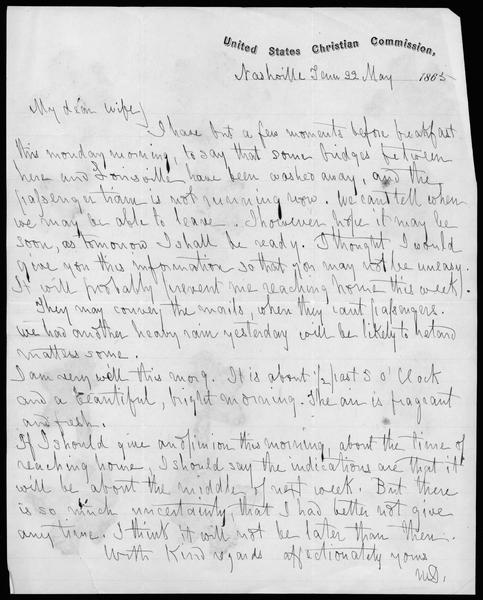 United States Christian Commission,
Nashville Tenn 22 May 1865
My dear wife,
I have but a few moments before breakfast
this monday morning, to say that some bridges between
here and Louisville have been washed away, and the
passenger train is not running now. We cant tell when
we may be able to leave. I however hope it may be
soon, as tomorrow I shall be ready. I thought I would
give you this information so that you may not be uneasy.
It will probably prevent me reaching home this week.
They may convey the mails, when they cant passengers.
we had another heavy rain yesterday will be likely to retard
matters some.
I am very well this morg. It is about ½ past 5 o'Clock
and a beautiful, bright morning. The air is fragrant
and fresh.
If I should give an opinion this morning, about the time of
reaching home, I should say the indications are that it
will be about the middle of next week. But there
is so much uncertainty that I had better not give
any time. I think it will not be later than then.
With Kind regards affectionately yours